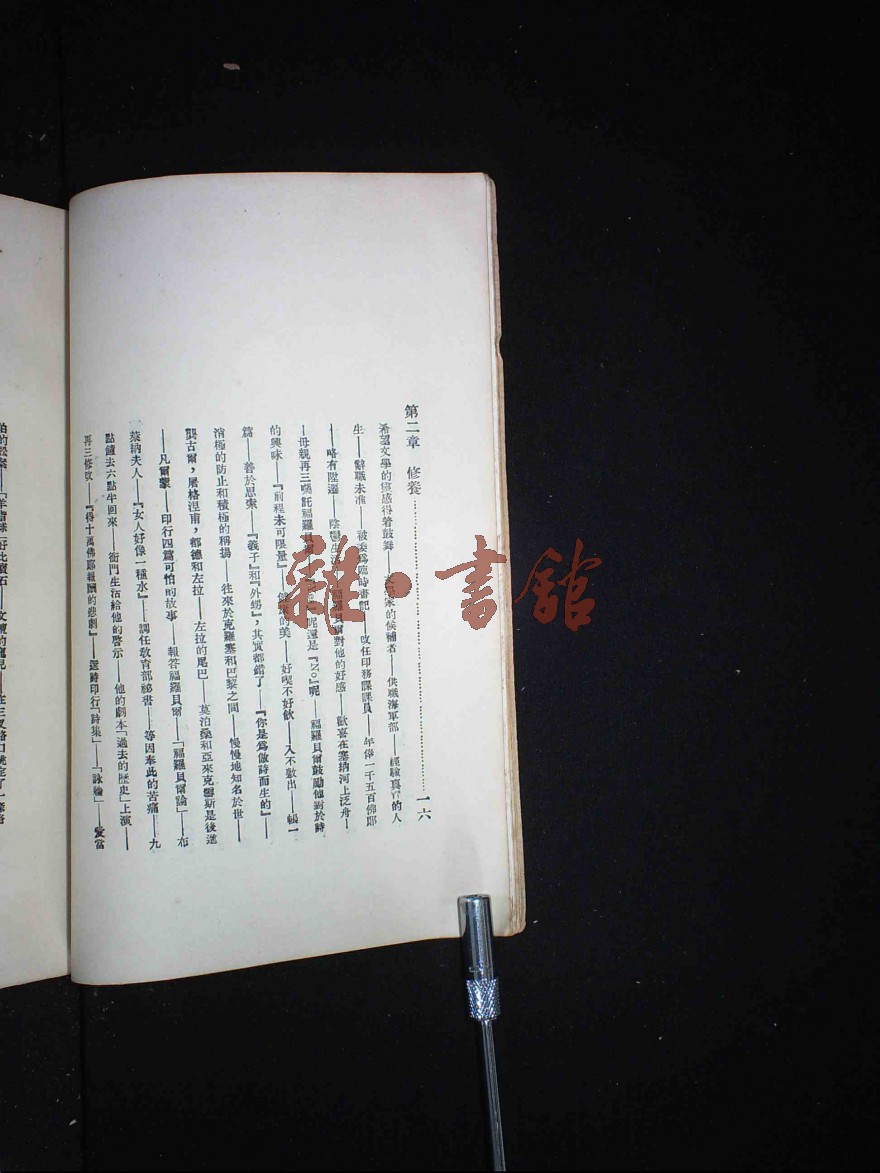 第二章 修養……………………一六
希望文學的靈感得着鼓舞——家的候補者——供職海軍部——經驗真實的人
生——辭職未准——被委爲臨時書記——改任印務課課員——年俸一千五百佛郎
——略有陞遷——陰鬱生活——福羅貝爾對他的好感——歡喜在塞納河上泛舟——
——母親再三囑託福羅貝爾——呢還是『No』呢——福羅貝爾鼓勵他對於詩
的興味——『前程未可限量』——健康的美——好喫不好飲——入不敷出——輯一
篇——善於思索——『義子』和『外甥』，其實都錯了——『你是爲做詩而生的』——
消極的防止和積極的稱揚——往來於克羅塞和巴黎之間——慢慢地知名於世——
龔古爾，屠格涅甫，都德和左拉——左拉的尾巴——莫泊桑和亞來克雪斯是後進
——凡爾蒙——印行四篇可怕的故事——報答福羅貝爾——「福羅貝爾論」——布
萊納夫人——『女人好像一種水』——調任敎育部祕書——等因奉此的苦痛——九
點鐘去六點半回來——衙門生活給他的啓示——他的劇本「過去的歷史」上演——
再三修改——『得十萬佛郎報酬的悲劇』——選詩印行「詩集」——「詠牆」——愛當
雜·書館